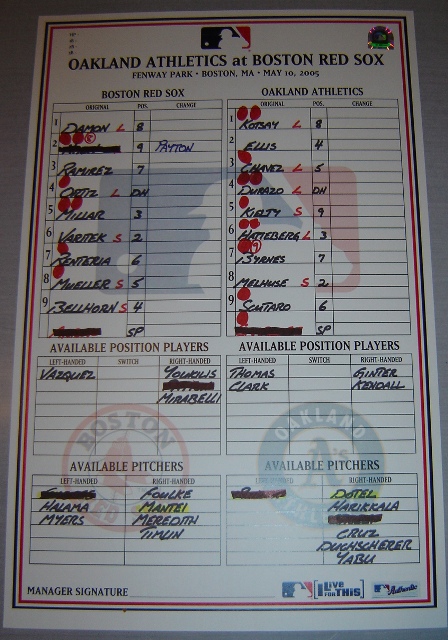 OAKLAND ATHLETICS at BOSTON RED SOX
FENWAY PARK • BOSTON, MA • MAY 10, 2005
BOSTON RED SOX
ORIGINAL POS. CHANGE
1 DAMON L 8
2 9 PAYTON
3 RAMIREZ 7
4 ORTIZ L DH
5 MILLAR 3
6 VARITEK S 2
7 RENTERIA 6
8 MUELLER S 5
9 BELLHORN S 4
SP
OAKLAND ATHLETICS
ORIGINAL POS. CHANGE
1 KOTSAY L 8
2 ELLIS 4
3 CHAVEZ L 5
4 DURAZO L DH
5 KIELTY S 9
6 HATTEBERG L 3
7 BYRNES 7
8 MELHUSE S 2
9 SCUTARO 6
SP
AVAILABLE POSITION PLAYERS
LEFT-HANDED SWITCH RIGHT-HANDED
VAZQUEZ YOUKILIS
MIRABELLI
AVAILABLE POSITION PLAYERS
LEFT-HANDED SWITCH RIGHT-HANDED
THOMAS GINTER
CLARK KENDALL
BOSTON
RED
AVAILABLE PITCHERS
LEFT-HANDED RIGHT-HANDED
FOULKE
HALAMA MANTEI
MYERS MEREDITH
TIMLIN
OAKLAND
A's
AVAILABLE PITCHERS
LEFT-HANDED RIGHT-HANDED
DOTEL
HARIKKALA
CRUZ
DUCHSCHERER
YABU
MANAGER SIGNATURE
I LIVE FOR THIS
Authentic